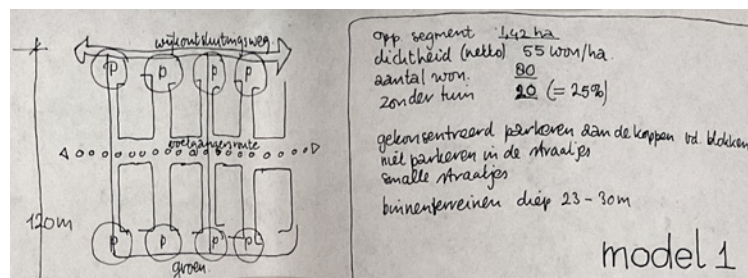 wijkontsluitingsweg
p p p p
voetgangersroute
120m
p p p p
groen.
opp. segment 1,42 ha
dichtheid (netto) 55 won/ha.
aantal won. 80
zonder tuin 20 (= 25%)
gekonsentreerd parkeren aan de koppen vd. blokken
niet parkeren in de straatjes
smalle straatjes
binnenterreinen diep 23 - 30m
model 1